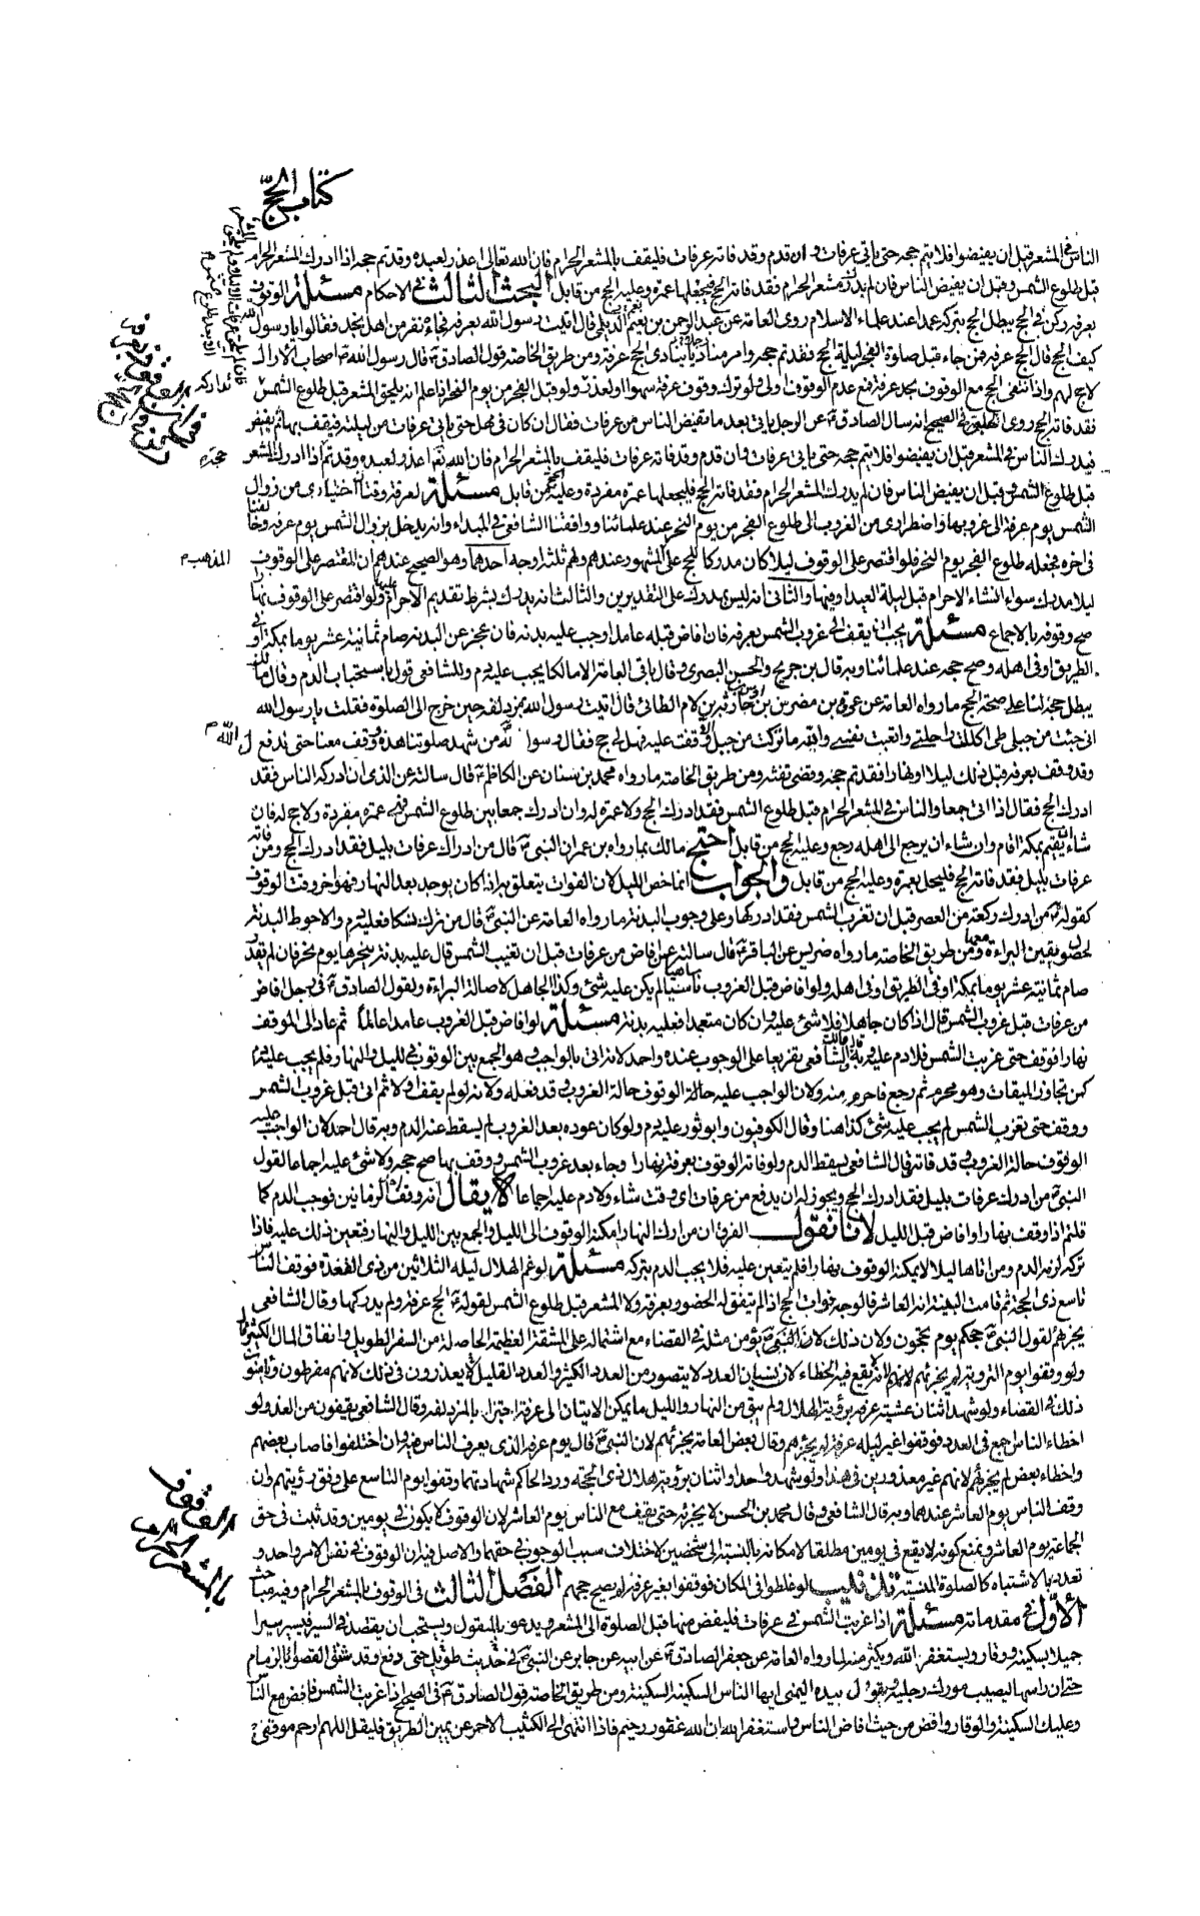 كتاب الحج
الناس في المشعر قبل ان يفيضوا فلا يتم حجه حتى ياتي عرفات وان قدم وقد فاته عرفات فليقف بالمشعر الحرام فان الله تعالى اعذر لعبده وقد تم حجه اذا ادرك المشعر الحرام
قبل طلوع الشمس وقبل ان يفيض الناس فان لم يدرك المشعر الحرام فقد فاته الحج فيجعلها عمرة وعليه الحج من قابل البحث الثالث في الاحكام مسئلة الوقوف
بعرفة ركن في الحج يبطل الحج بتركه عمدا عند علماء الاسلام روى العامة عن عبد الرحمن بن نعيم الديلي قال اتيت رسول الله بعرفة فجاءه نفر من اهل نجد فقالوا يا رسول
كيف الحج قال الحج عرفة فمن جاء قبل صلوة الفجر ليلة الحج فقد تم حجه وامر مناديا ينادى الحج عرفة ومن طريق الخاصة قول الصادق قال رسول الله اصحاب الاراك
لا حج لهم واذا انتفى الحج مع الوقوف بحد عرفة فمع عدم الوقوف اولى ولو ترك وقوف عرفة سهوا او لعذر ولو قبل الفجر من يوم النحر اذا علم انه يلحق المشعر قبل طلوع الشمس
فقد فاته الحج روى الحلبي في الصحيح انه سال الصادق عن الرجل ياتي بعد ما تفيض الناس من عرفات فقال ان كان في مهل حتى ياتي عرفات من ليلته فيقف بها ثم يفيض
فيدرك الناس في المشعر قبل ان يفيضوا فلا يتم حجه حتى ياتي عرفات وان قدم وقد فاته عرفات فليقف بالمشعر الحرام فان الله تعالى اعذر لعبده وقد تم اذا ادرك المشعر
قبل طلوع الشمس وقبل ان يفيض الناس فان لم يدرك المشعر الحرام فقد فاته الحج فليجعلها عمرة مفردة وعليه الحج من قابل مسئلة لعرفة وقتان اختيارى من زوال
الشمس يوم عرفة الى غروبها واضطرارى من الغروب الى طلوع الفجر من يوم النحر عند علمائنا ووافقنا الشافعي في المبداء وانه يدخل بزوال الشمس يوم عرفة
في اخره فجعله طلوع الفجر يوم النحر فلو اقتصر على الوقوف ليلا كان مدركا للحج على المشهور عندهم ولهم ثلثة اوجه احدهما وهو الصحيح عندهم ان المقتصر على الوقوف
المذهب م
ليلا مدرك سواء انشاء الاحرام قبل ليلة العيد او فيها والثاني انه ليس بمدرك على التقديرين والثالث انه يدرك بشرط تقديم الاحرام عليها ولو اقتصر على الوقوف نهارا
صح وقوفه بالاجماع مسئلة يجب ان يقف الى غروب الشمس بعرفة فان افاض قبله عامدا وجب عليه بدنة فان عجز عن البدنة صام ثمانية عشر يوما بمكة او في
الطريق او في اهله وصح حجه عند علمائنا وبه قال بن جريج والحسن البصرى وقال باقي العامة الا مالكا يجب عليه دم وللشافعي قول باستحباب الدم وقال مالك
يبطل حجه لنا على صحة الحج ما رواه العامة عن عروة بن مضرس بن اوس بن حارثة بن لام الطائي قال اتيت رسول الله بمزدلفة حين خرج الى الصلوة فقلت يا رسول الله
اني جئت من جبلي طى اكللت راحلتي واتعبت نفسي والله ما تركت من جبل الا وقفت عليه فهل لي حج فقال رسول الله من شهد صلوتنا هذه ووقف معنا حتى ندفع
وقد وقف بعرفة قبل ذلك ليلا او نهارا فقد تم حجه وقضى تفثه ومن طريق الخاصة ما رواه محمد بن سنان عن الكاظم قال سالته عن الذى ان ادركه الناس فقد
ادرك الحج فقال اذا اتى جمعا والناس في المشعر الحرام قبل طلوع الشمس فقد ادرك الحج ولا عمرة له وان ادرك جمعا بين طلوع الشمس فهي عمرة مفردة ولا حج له فان
شاء ان يقيم بمكة اقام وان شاء ان يرجع الى اهله رجع وعليه الحج من قابل احتج مالك بما رواه بن عمر ان النبي قال من ادرك عرفات بليل فقد ادرك الحج ومن فاته
عرفات بليل فقد فاته الحج فليحل بعمرة وعليه الحج من قابل والجواب انما خص الليل لان الفوات يتعلق به اذا كان يوجد بعد النهار فهو اخر وقت الوقوف
كقوله من ادرك ركعة من العصر قبل ان تغرب الشمس فقد ادركها وعلى وجوب البدنة ما رواه العامة عن النبي قال من ترك نسكا فعليه دم والاحوط البدنة
لحصول يقين البراءة معها ومن طريق الخاصة ما رواه ضريس عن الباقر قال سالته عن رجل افاض من عرفات قبل ان تغيب الشمس قال عليه بدنة ينحرها يوم النحر فان لم يقدر
صام ثمانية عشر يوما بمكة او في الطريق او في اهله ولو افاض قبل الغروب ناسيا لم يكن عليه شئ وكذا الجاهل لاصالة البراءة ولقول الصادق في رجل افاض
من عرفات قبل غروب الشمس قال ان كان جاهلا فلا شئ عليه وان كان متعمدا فعليه بدنة مسئلة لو افاض قبل الغروب عامدا عالما ثم عاد الى الموقف
نهارا فوقف حتى غربت الشمس فلا دم عليه وبه قال مالك والشافعي تفريعا على الوجوب عنده واحد لانه اتى بالواجب وهو الجمع بين الوقوف في الليل والنهار فلم يجب عليه دم
كمن تجاوز الميقات وهو محرم ثم رجع فاحرم منه ولان الواجب عليه حالة الوقوف حالة الغروب وقد فعله ولانه لو لم يقف اولا ثم اتى قبل غروب الشمس
ووقف حتى تغرب الشمس لم يجب عليه شئ كذا هنا وقال الكوفيون وابو ثور عليه دم ولو كان عوده بعد الغروب لم يسقط عنه الدم وبه قال احمد لان الواجب عليه
الوقوف حالة الغروب وقد فاته قال الشافعي يسقط الدم ولو فاته الوقوف بعرفة نهارا وجاء بعد غروب الشمس ووقف بها صح حجه ولا شئ عليه اجماعا لقول
النبي من ادرك عرفات بليل فقد ادرك الحج ويجوز له ان يدفع من عرفات اى وقت شاء ولا دم عليه اجماعا لا يقال انه وقف احد الزمانين فوجب الدم كما
قلتم اذا وقف نهارا وافاض قبل الليل لانا نقول الفرق ان من ادرك النهار امكنه الوقوف الى الليل والجمع بين الليل والنهار فتعين ذلك عليه فاذا
تركه لزمه الدم ومن اتاها ليلا لا يمكنه الوقوف نهارا فلم يتعين عليه فلا يجب الدم بتركه مسئلة لو غم الهلال ليلة الثلاثين من ذى القعدة فوقف الناس
تاسع ذى الحجة ثم قامت البينة انه العاشر فالوجه فوات الحج اذا لم يتفق له الحضور بعرفة ولا المشعر قبل طلوع الشمس لقوله الحج عرفة ولم يدركها وقال الشافعي
يجزئهم لقول النبي حجكم يوم تحجون ولان ذلك لا يؤمن مثله في القضاء مع اشتماله على المشقة العظيمة الحاصلة من السفر الطويل وانفاق المال الكثير
ولو وقفوا يوم التروية لم يجزئهم لانه لا يقع فيه الخطاء لان نسيان العدد لا يتصور من العدد الكثير والعدد القليل لا يعذرون في ذلك لانهم مفرطون ويامنون
ذلك في القضاء ولو شهد اثنان عشية عرفة برؤية الهلال ولم يبق من النهار والليل ما يمكن الاتيان الى عرفة اجتزا بالمزدلفة وقال الشافعي يقفون من الغد ولو
اخطاء الناس اجمع في العدد فوقفوا غير ليلة عرفة لم يجزئهم وقال بعض العامة يجزئهم لان النبي قال يوم عرفة الذى يعرف الناس فيه وان اختلفوا فاصاب بعضهم
واخطاء بعض لم يجزئهم لانهم غير معذورين في هذا ولو شهد واحد او اثنان برؤية هلال ذى الحجة ورد الحاكم شهادتهما وقفوا يوم التاسع على وفق رؤيتهم وان
وقف الناس يوم العاشر عندهما وبه قال الشافعي وقال محمد بن الحسن لا يجزئه حتى يقف مع الناس يوم العاشر لان الوقوف لا يكون في يومين وقد ثبت في حق
الجماعة يوم العاشر ونمنع كونه لا يقع في يومين مطلقا لامكانه بالنسبة الى شخصين لاختلاف سبب الوجوب في حقهما والاصل فيه ان الوقوف في نفس الامر واحد و
تعدد بالاشتباه كالصلوة المنسية تذنيب لو غلطوا في المكان فوقفوا بغير عرفة لم يصح حجهم الفصل الثالث في الوقوف بالمشعر الحرام وفيه مباحث
الاول في مقدماته مسئلة اذا غربت الشمس في عرفات فليفض منها قبل الصلوة الى المشعر ويدعو بالمنقول ويستحب ان يقتصد في السير فيسير سيرا
جميلا بسكينة ووقار ويستغفر الله ويكثر منه لما رواه العامة عن جعفر الصادق عن ابيه عن جابر عن النبي في حديث طويل حتى دفع وقد شنق القصواء بالزمام
حتى ان راسها ليصيب مورك رحله ويقول بيده اليمنى ايها الناس السكينة السكينة ومن طريق الخاصة قول الصادق في الصحيح اذا غربت الشمس فافض مع الناس
وعليك السكينة والوقار وافض من حيث افاض الناس واستغفر الله ان الله غفور رحيم فاذا انتهى الى الكثيب الاحمر عن يمين الطريق فليقل اللهم ارحم موقفي
الوقوف
بالمشعر الحرام